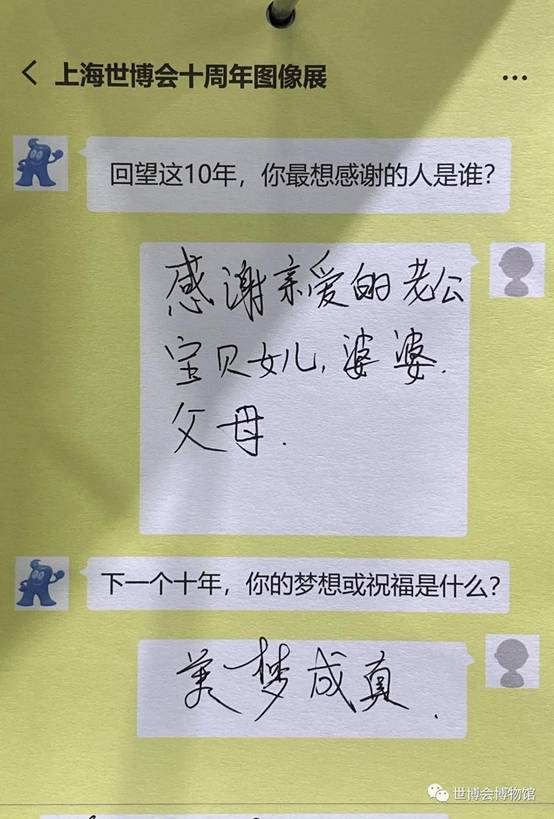 上海世博会十周年图像展
回望这10年，你最想感谢的人是谁？
感谢亲爱的老公
宝贝女儿，婆婆.
父母.
下一个十年，你的梦想或祝福是什么？
美梦成真.
世博会博物馆